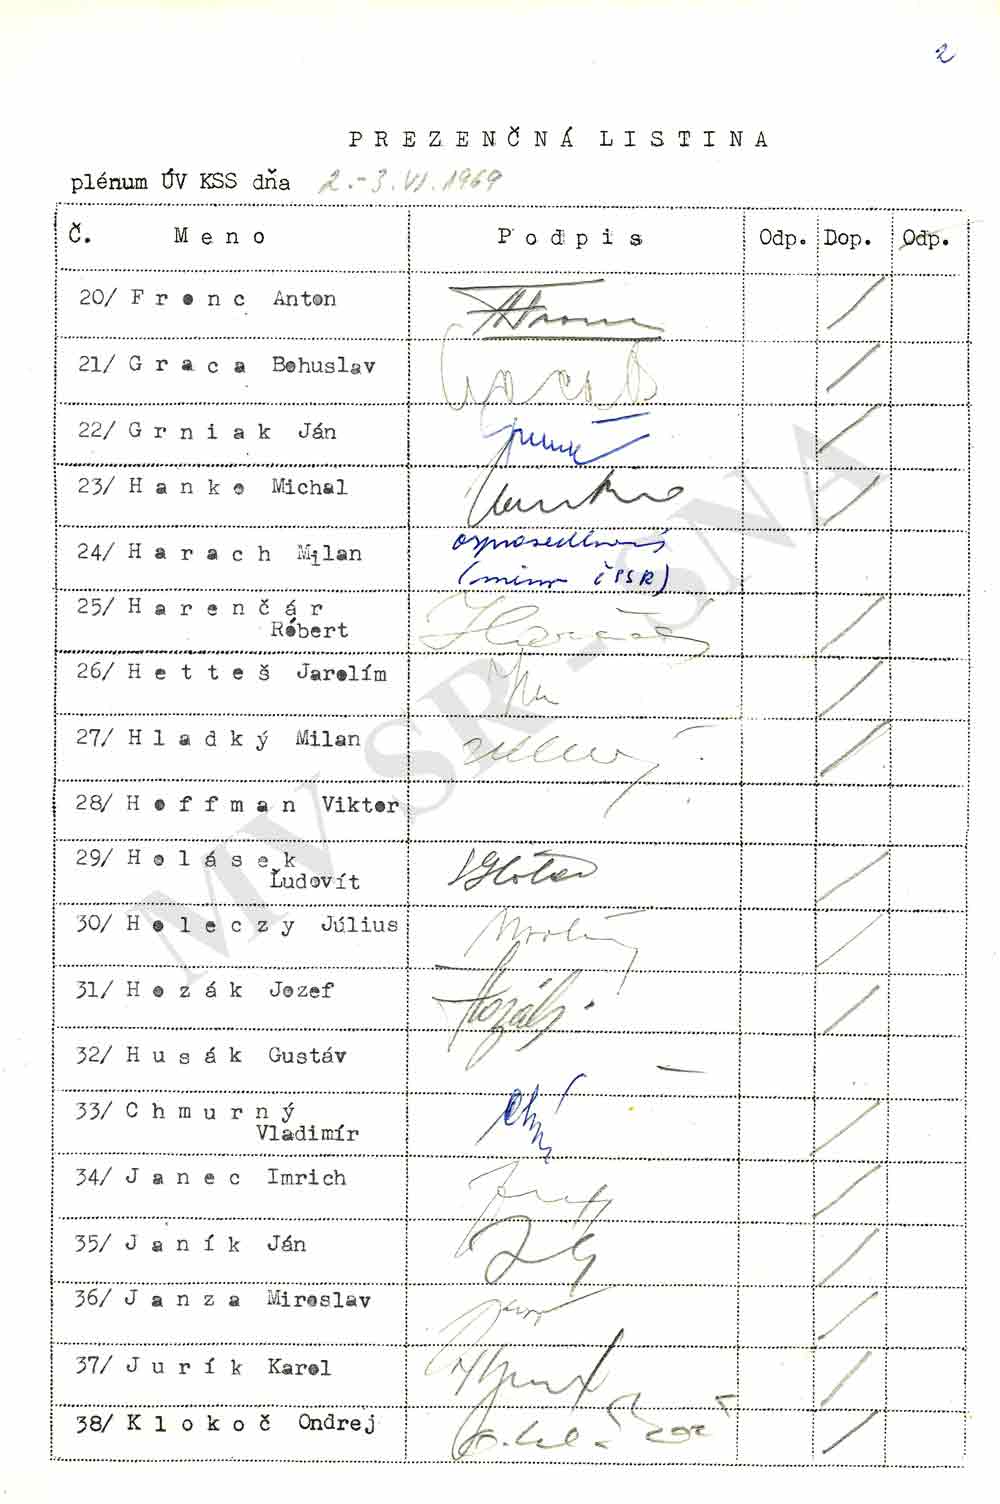 2
PREZENČNÁ LISTINA
plénum ÚV KSS dňa 2.-3.VI.1969
Č. Meno Podpis Odp. Dop. Odp.
20/ Fronc Anton
21/ Graca Bohuslav
22/ Grniak Ján
23/ Hanko Michal
24/ Harach Milan ospravedlnený
(min. ČSSR)
25/ Harenčár
Róbert
26/ Hetteš Jarolím
27/ Hladký Milan
28/ Hoffman Viktor
29/ Holásek
Ľudovít
30/ Holeczy Július
31/ Hozák Jozef
32/ Husák Gustáv
33/ Chmurný
Vladimír
34/ Janec Imrich
35/ Janík Ján
36/ Janza Miroslav
37/ Jurík Karol
38/ Klokoč Ondrej
MV SR - SNA